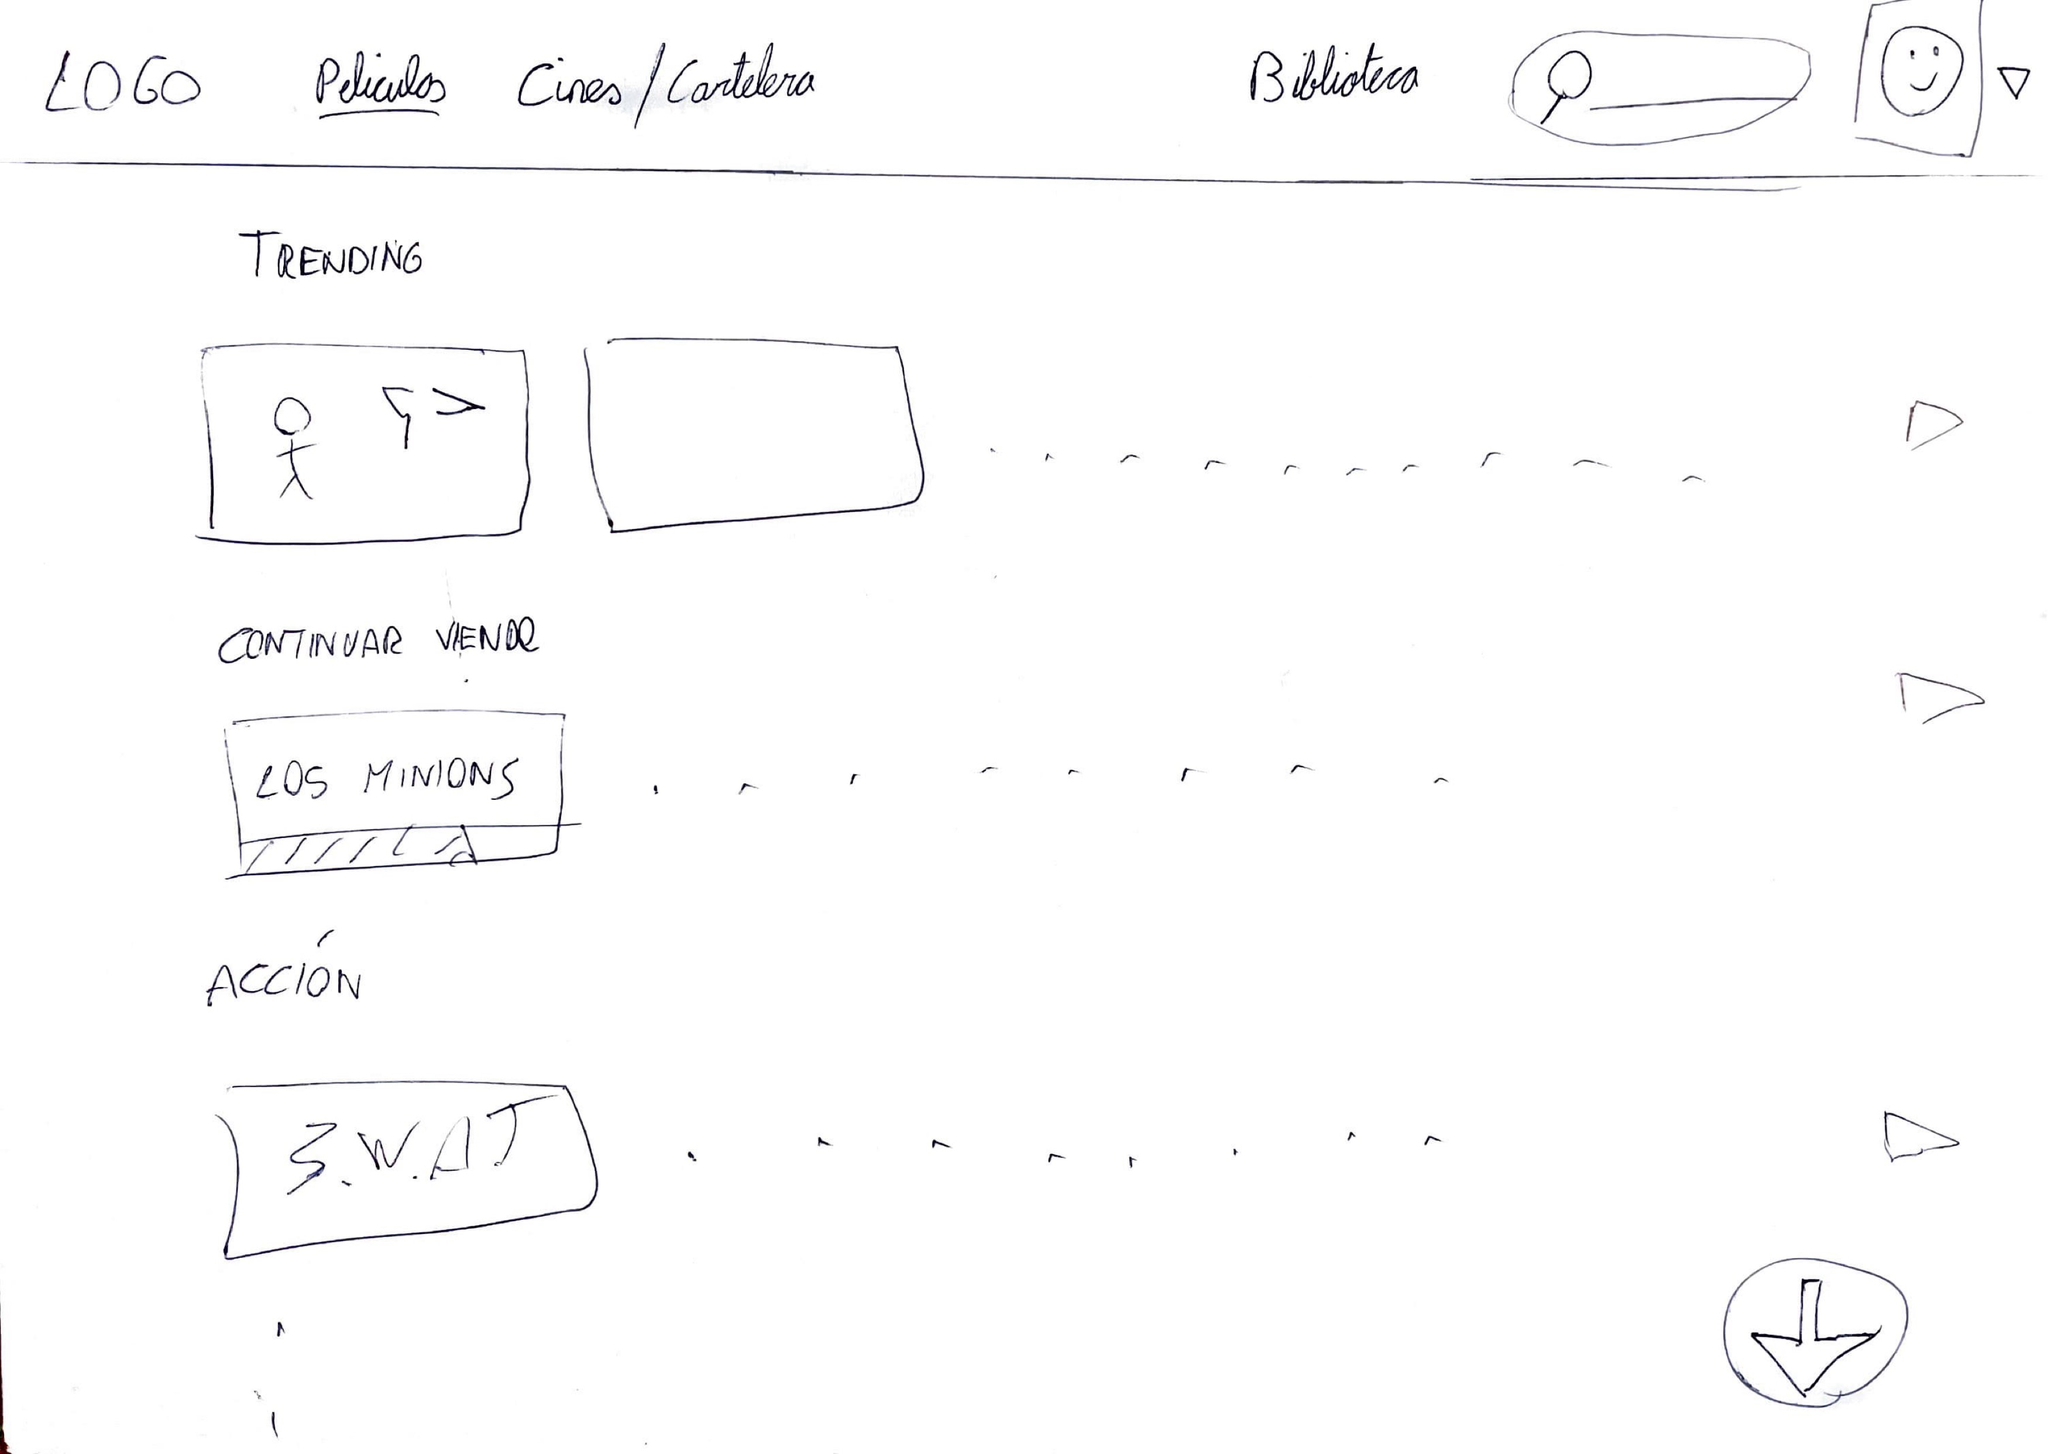 LOGO Peliculas Cines/Cartelera Biblioteca
TRENDING
CONTINUAR VIENDO
LOS MINIONS
ACCIÓN
S.W.AT